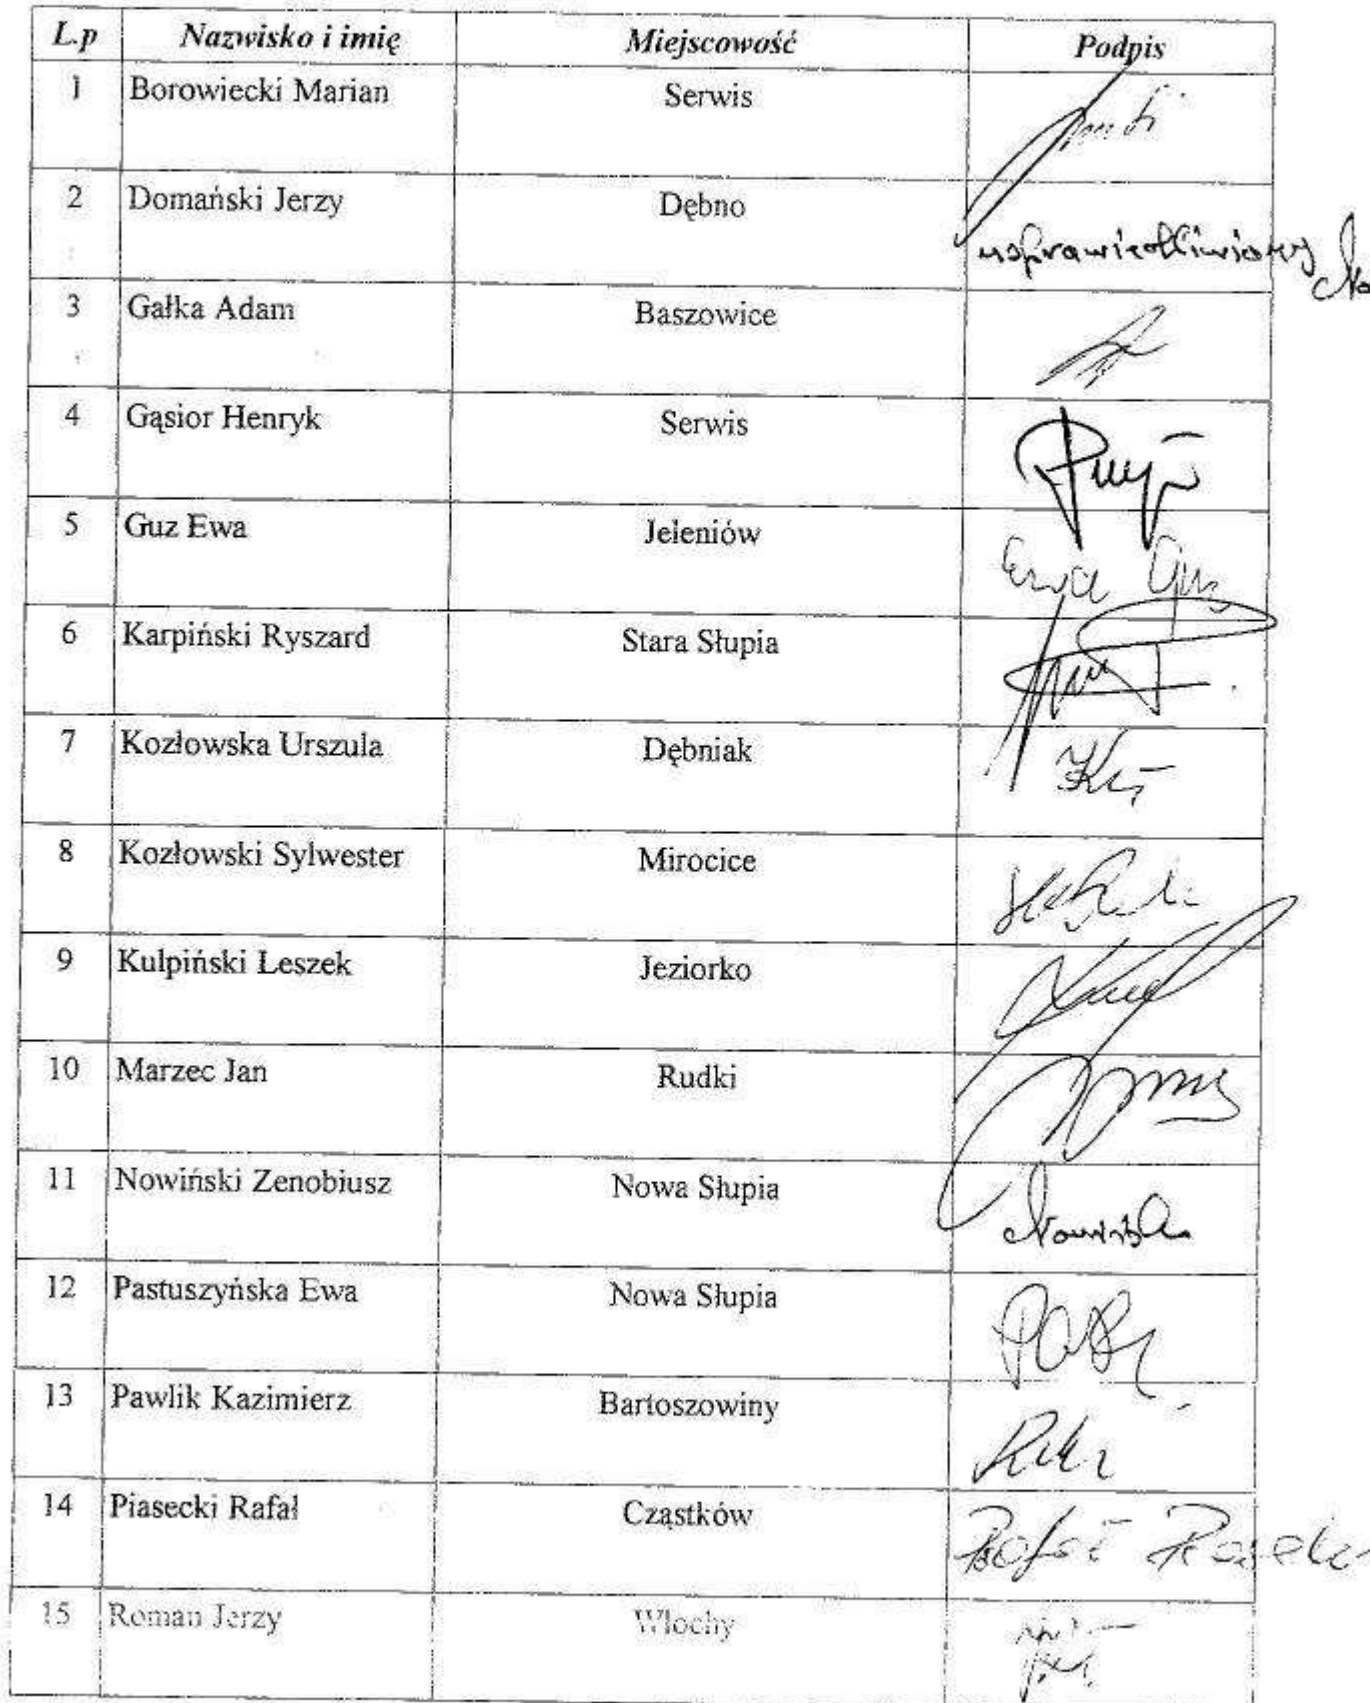 L.p Nazwisko i imię Miejscowość Podpis
1 Borowiecki Marian Serwis
2 Domański Jerzy Dębno usprawiedliwiony
3 Gałka Adam Baszowice
4 Gąsior Henryk Serwis
5 Guz Ewa Jeleniów Ewa Guz
6 Karpiński Ryszard Stara Słupia
7 Kozłowska Urszula Dębniak
8 Kozłowski Sylwester Mirocice
9 Kulpiński Leszek Jeziorko
10 Marzec Jan Rudki
11 Nowiński Zenobiusz Nowa Słupia
12 Pastuszyńska Ewa Nowa Słupia
13 Pawlik Kazimierz Bartoszowiny
14 Piasecki Rafał Cząstków Rafał
15 Roman Jerzy Włochy